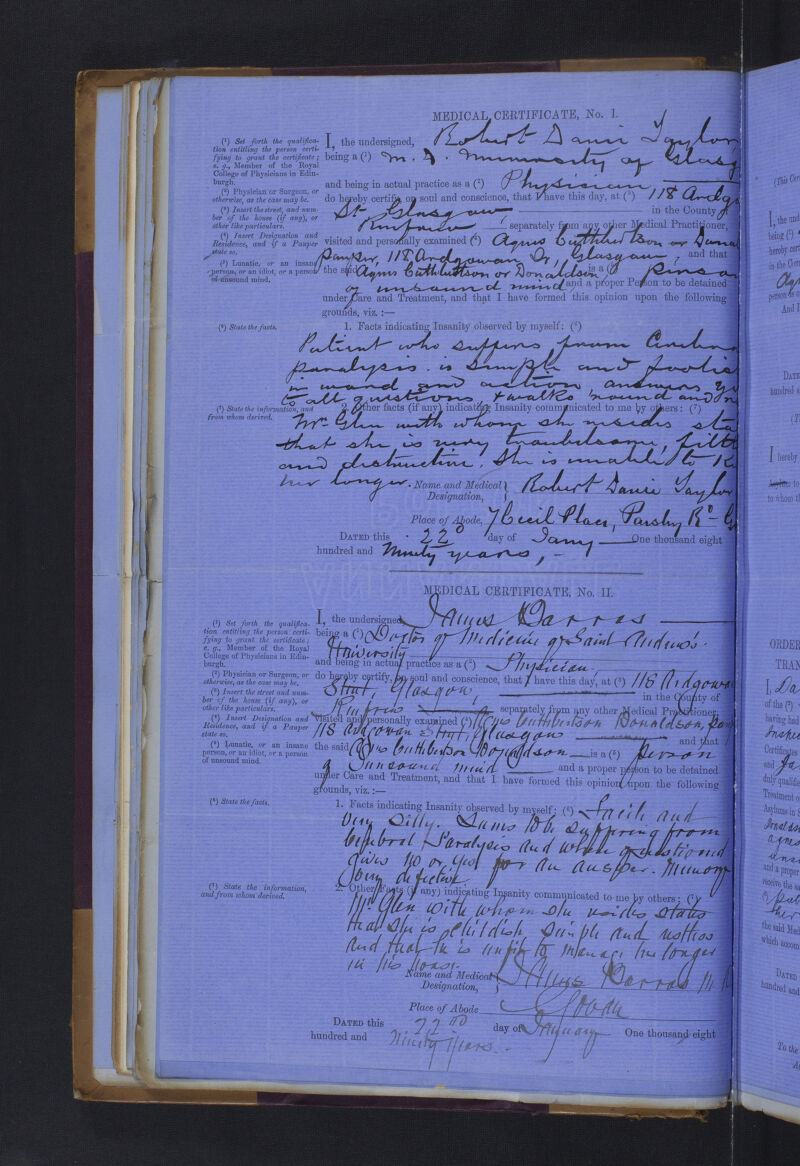 MEDICAL CERTIFICATE, No. I.
(¹) Set forth the qualifica-
tion entitling the person certi-
fying to grant the certificate;
e. g., Member of the Royal
College of Physicians in Edin-
burgh.
(²) Physician or Surgeon, or
otherwise, as the case may be.
(³) Insert the street, and num-
ber of the house (if any), or
other like particulars.
(⁴) Insert Designation and
Residence, and if a Pauper
state so.
(⁵) Lunatic, or an insane
person, or an idiot, or a person
of unsound mind.
I, the undersigned, Robert Taylor
being a (¹) M.D. University of Glasg
and being in actual practice as a (²) Physician
do hereby certify, on soul and conscience, that I have this day, at (³) 118 Ardg
St. Glasgow in the County
Renfrew separately from any other Medical Practitioner,
visited and personally examined (⁴) Agnes Cuthbertson or Dona
pauper, 118 Ardgowan St, Glasgow, and that
the said Agnes Cuthbertson or Donaldson is a (⁵) person
of unsound mind and a proper Person to be detained
under Care and Treatment, and that I have formed this opinion upon the following
grounds, viz. :—
(⁶) State the facts.
1. Facts indicating Insanity observed by myself: (⁶)
Patient who suffers from Cerebra
paralysis is simple and foolis
in word and action answers ye
to all questions & walks round and
(⁷) State the information, and
from whom derived.
2. Other facts (if any) indicating Insanity communicated to me by others: (⁷)
Mr Glen with whom she resides sta
that she is very troublesome, filth
and destructive. She is unable to k
her longer.
Name and Medical
Designation, Robert Taylor
Place of Abode, 7 Cecil Place, Paisley Rd
DATED this 22d day of Jany One thousand eight
hundred and Ninety years,
MEDICAL CERTIFICATE, No. II.
(¹) Set forth the qualifica-
tion entitling the person certi-
fying to grant the certificate;
e. g., Member of the Royal
College of Physicians in Edin-
burgh.
(²) Physician or Surgeon, or
otherwise, as the case may be.
(³) Insert the street and num-
ber of the house (if any), or
other like particulars.
(⁴) Insert Designation and
Residence, and if a Pauper
state so.
(⁵) Lunatic, or an insane
person, or an idiot, or a person
of unsound mind.
I, the undersigned, James Barras
being a (¹) Doctor of Medicine of Saint Andrew's
University
and being in actual practice as a (²) Physician
do hereby certify, on soul and conscience, that I have this day, at (³) 118 Ardgowan
Street, Glasgow, in the County of
Renfrew separately from any other Medical Practitioner,
visited and personally examined (⁴) Agnes Cuthbertson Donaldson, pau
118 Ardgowan Street, Glasgow and that
the said Agnes Cuthbertson Donaldson is a (⁵) person
of unsound mind and a proper person to be detained
under Care and Treatment, and that I have formed this opinion upon the following
grounds, viz. :—
(⁶) State the facts.
1. Facts indicating Insanity observed by myself: (⁶) Facile and
very silly. Seems to be suffering from
Cerebral Paralysis and when questioned
gives no or yes for an answer. Memory
very defective.
(⁷) State the information,
and from whom derived.
2. Other Facts (if any) indicating Insanity communicated to me by others: (⁷)
Mr Glen with whom she resides states
that she is childish, simple and useless
and that he is unfit to manage her longer
in his house.
Name and Medical
Designation, James Barras M
Place of Abode Govan
DATED this 22nd day of January One thousand eight
hundred and Ninety years.
(This Cer
I, the und
being (¹)
hereby cert
in the Cou
person is
And I
DATE
hundred and
I hereby
Asylum to
to whom
ORDER
TRAN
I, Da
of the (¹)
having had
Inspec
Certificates
and Ja
duly qualifie
Treatment
Asylums in S
Donaldso
and a proper
receive the sa
the said Med
which accom
DATED
hundred and
To the